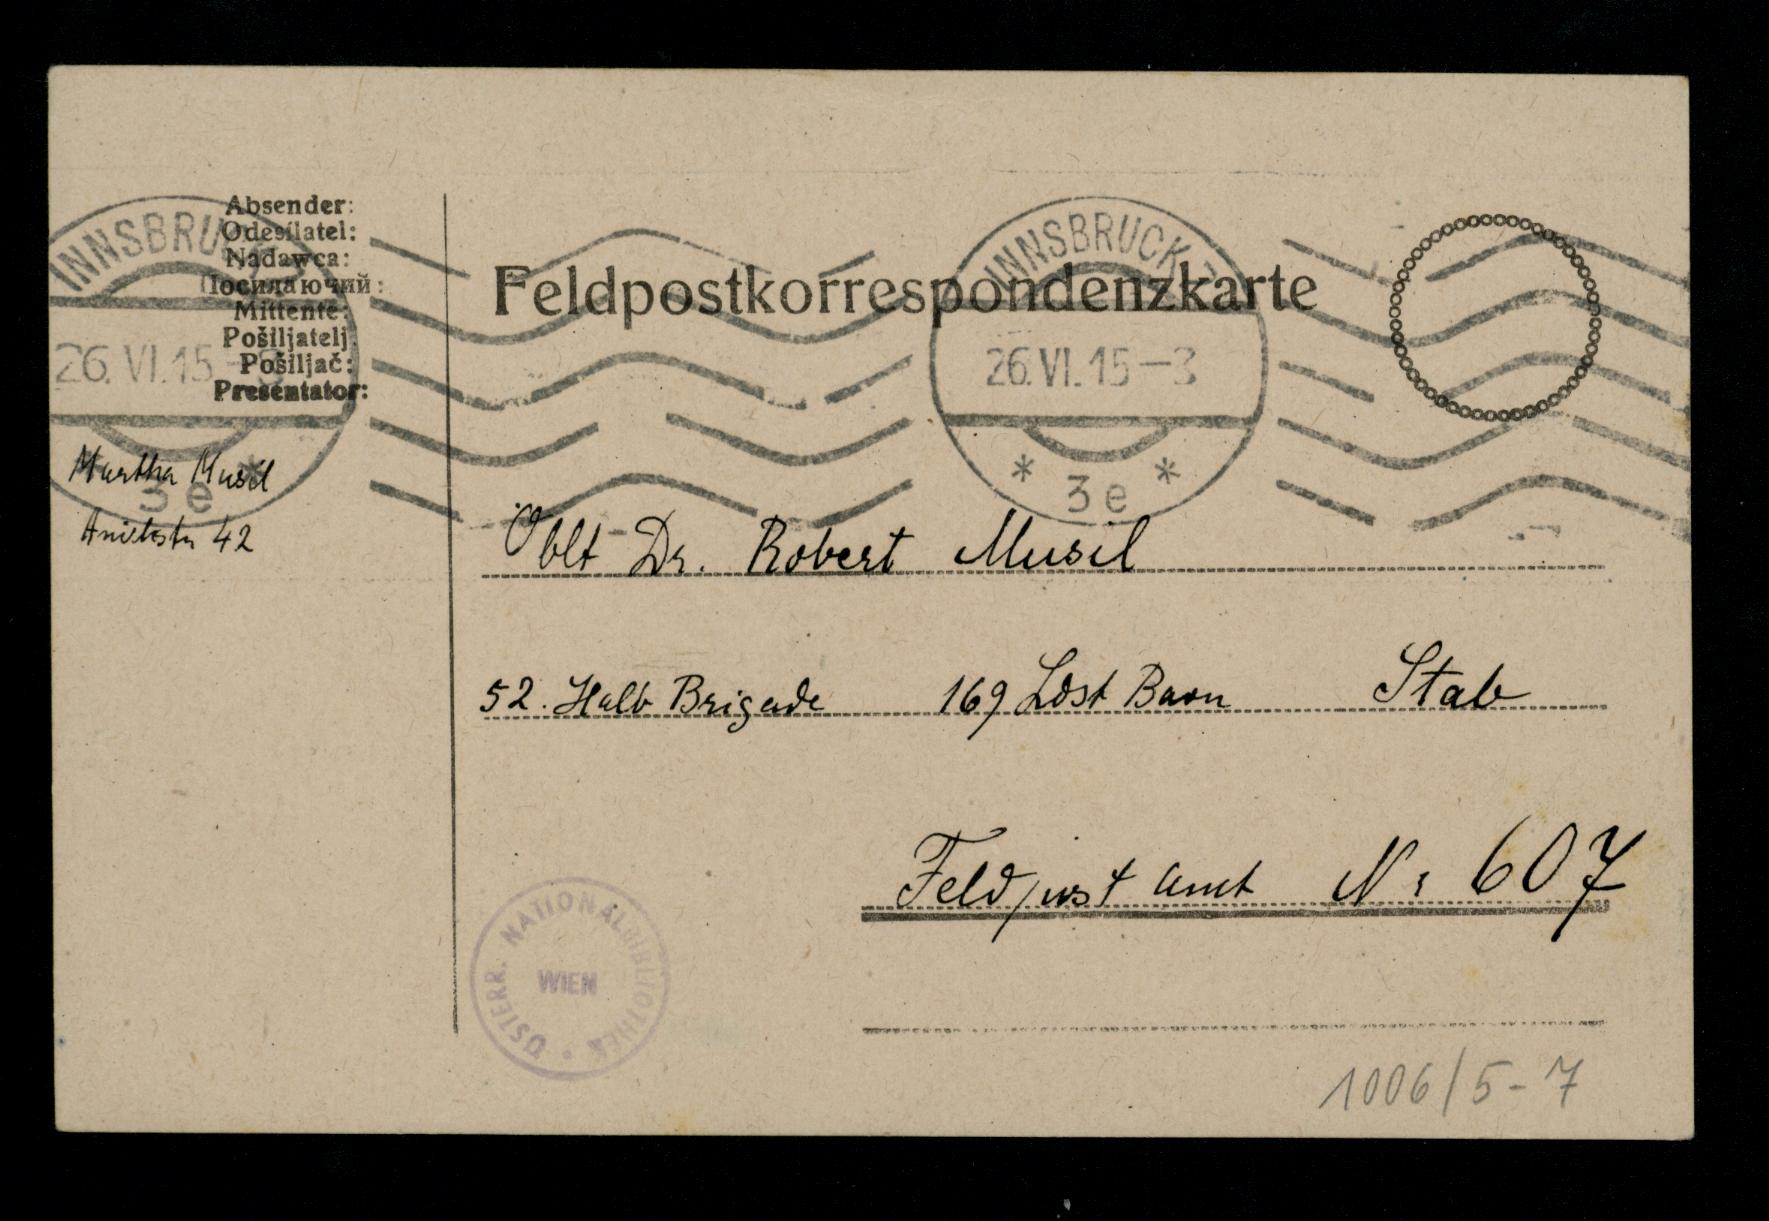 Absender:
Odesílatel:
Nadawca:
Посилаючий:
Mittente:
Pošiljatelj:
Pošiljač:
Presentator:
Martha Musil
42
Feldpostkorrespondenzkarte
INNSBRUCK
26.VI.15-8
3e
INNSBRUCK 1
26.VI.15-3
* 3e *
Oblt Dr. Robert Musil
52. Halb Brigade 169 Ldst Baon Stab
Feldpost amt Nr 607
ÖSTERR. NATIONALBIBLIOTHEK
WIEN
1006/5-7